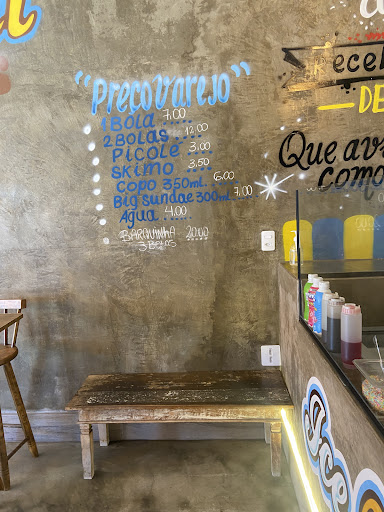 "Preço varejo"
1 Bola 7,00
2 Bolas 12,00
Picolé 3,00
Skimo 3,50
Copo 350ml. 6,00
Big sundae 300ml. 7,00
Água 4,00
BARQUINHA 20,00
3 BOLAS
ecel
DE
Que av
como
Ice